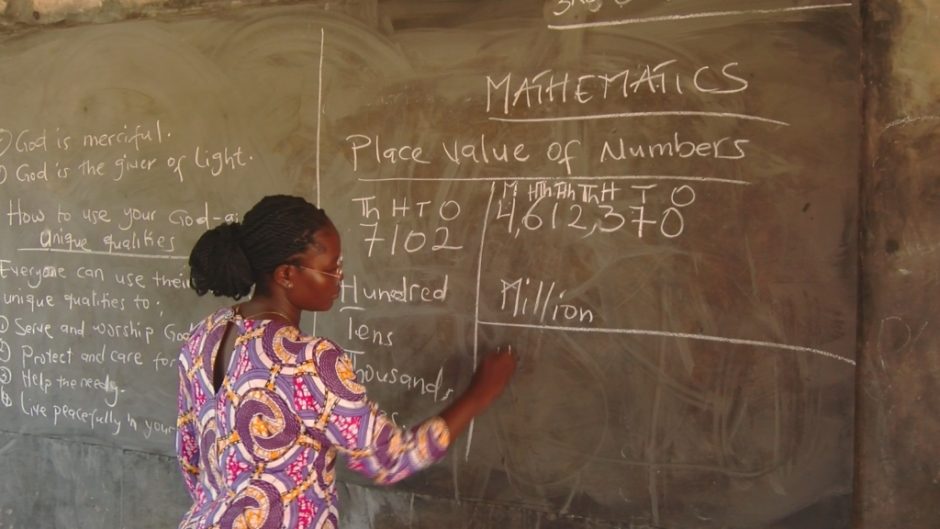 God is merciful.
God is the giver of Light.
How to use your God-
Unique qualities
Everyone can use their
unique qualities to;
① Serve and worship God
② Protect and care for
③ Help the needy.
Live peacefully in your
MATHEMATICS
Place value of Numbers
Th H T O
7102
Hundred
Tens
Thousands
M HTh TTh Th H T O
4,612,370
Million